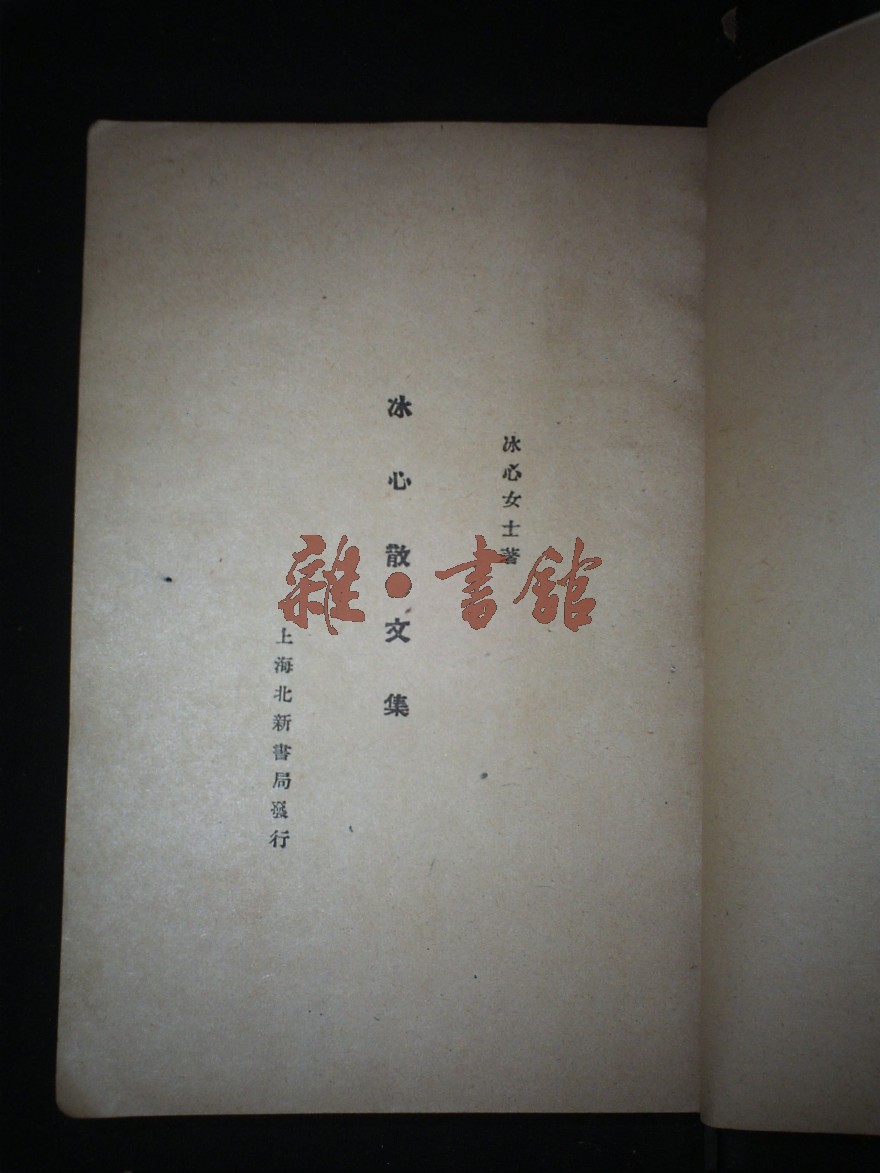 冰心女士著
冰心散文集
上海北新書局發行
雜·書館